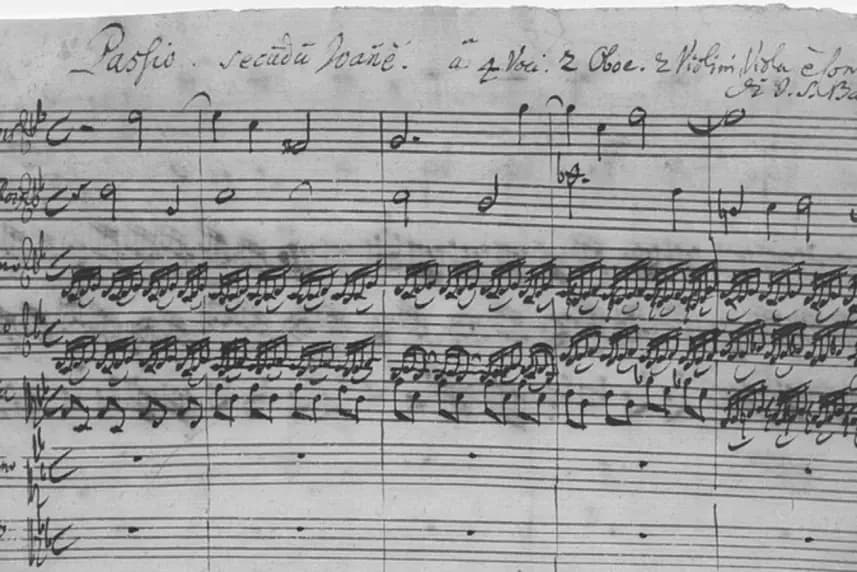 Passio. secũdũ Joañẽ. ã 4 Voci. 2 Oboe. 2 Violini, Viola è Con
di J. S. Ba